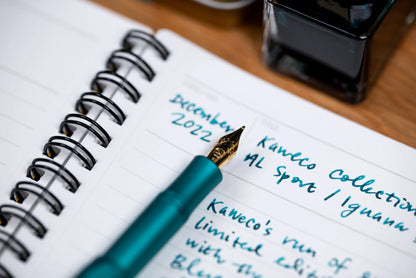 December
2022
Kaweco Collection
AL Sport / Iguana
Kaweco's run of
limited edi
with th
Blue